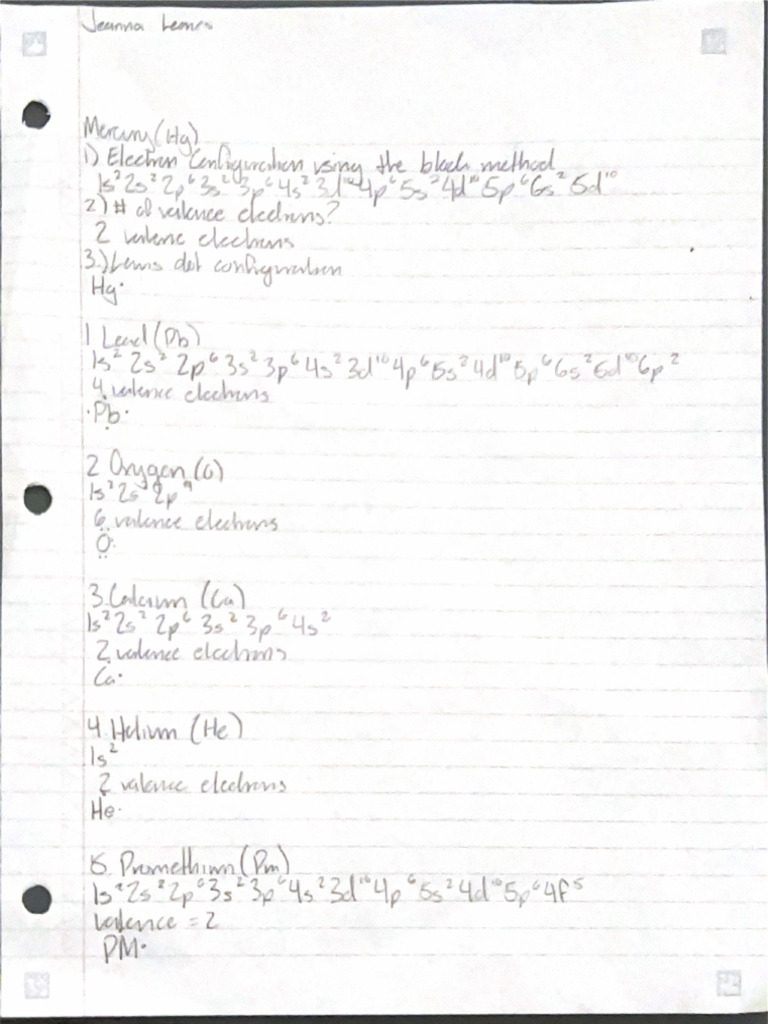 Jeanna Leones
Mercury (Hg)
1) Electron Configuration using the block method
1s² 2s² 2p⁶ 3s² 3p⁶ 4s² 3d¹⁰ 4p⁶ 5s² 4d¹⁰ 5p⁶ 6s² 5d¹⁰
2) # of valence electrons?
2 valenc electrons
3.) Lewis dot configuration
Hg·
1 Lead (Pb)
1s² 2s² 2p⁶ 3s² 3p⁶ 4s² 3d¹⁰ 4p⁶ 5s² 4d¹⁰ 5p⁶ 6s² 5d¹⁰ 6p²
4 valence electrons
·Pb·
2 Oxygen (O)
1s² 2s² 2p⁴
6 valence electrons
O
3. Calcium (Ca)
1s² 2s² 2p⁶ 3s² 3p⁶ 4s²
2 valence electrons
Ca·
4. Helium (He)
1s²
2 valence electrons
He·
5. Promethium (Pm)
1s² 2s² 2p⁶ 3s² 3p⁶ 4s² 3d¹⁰ 4p⁶ 5s² 4d¹⁰ 5p⁶ 4f⁵
valence = 2
PM·